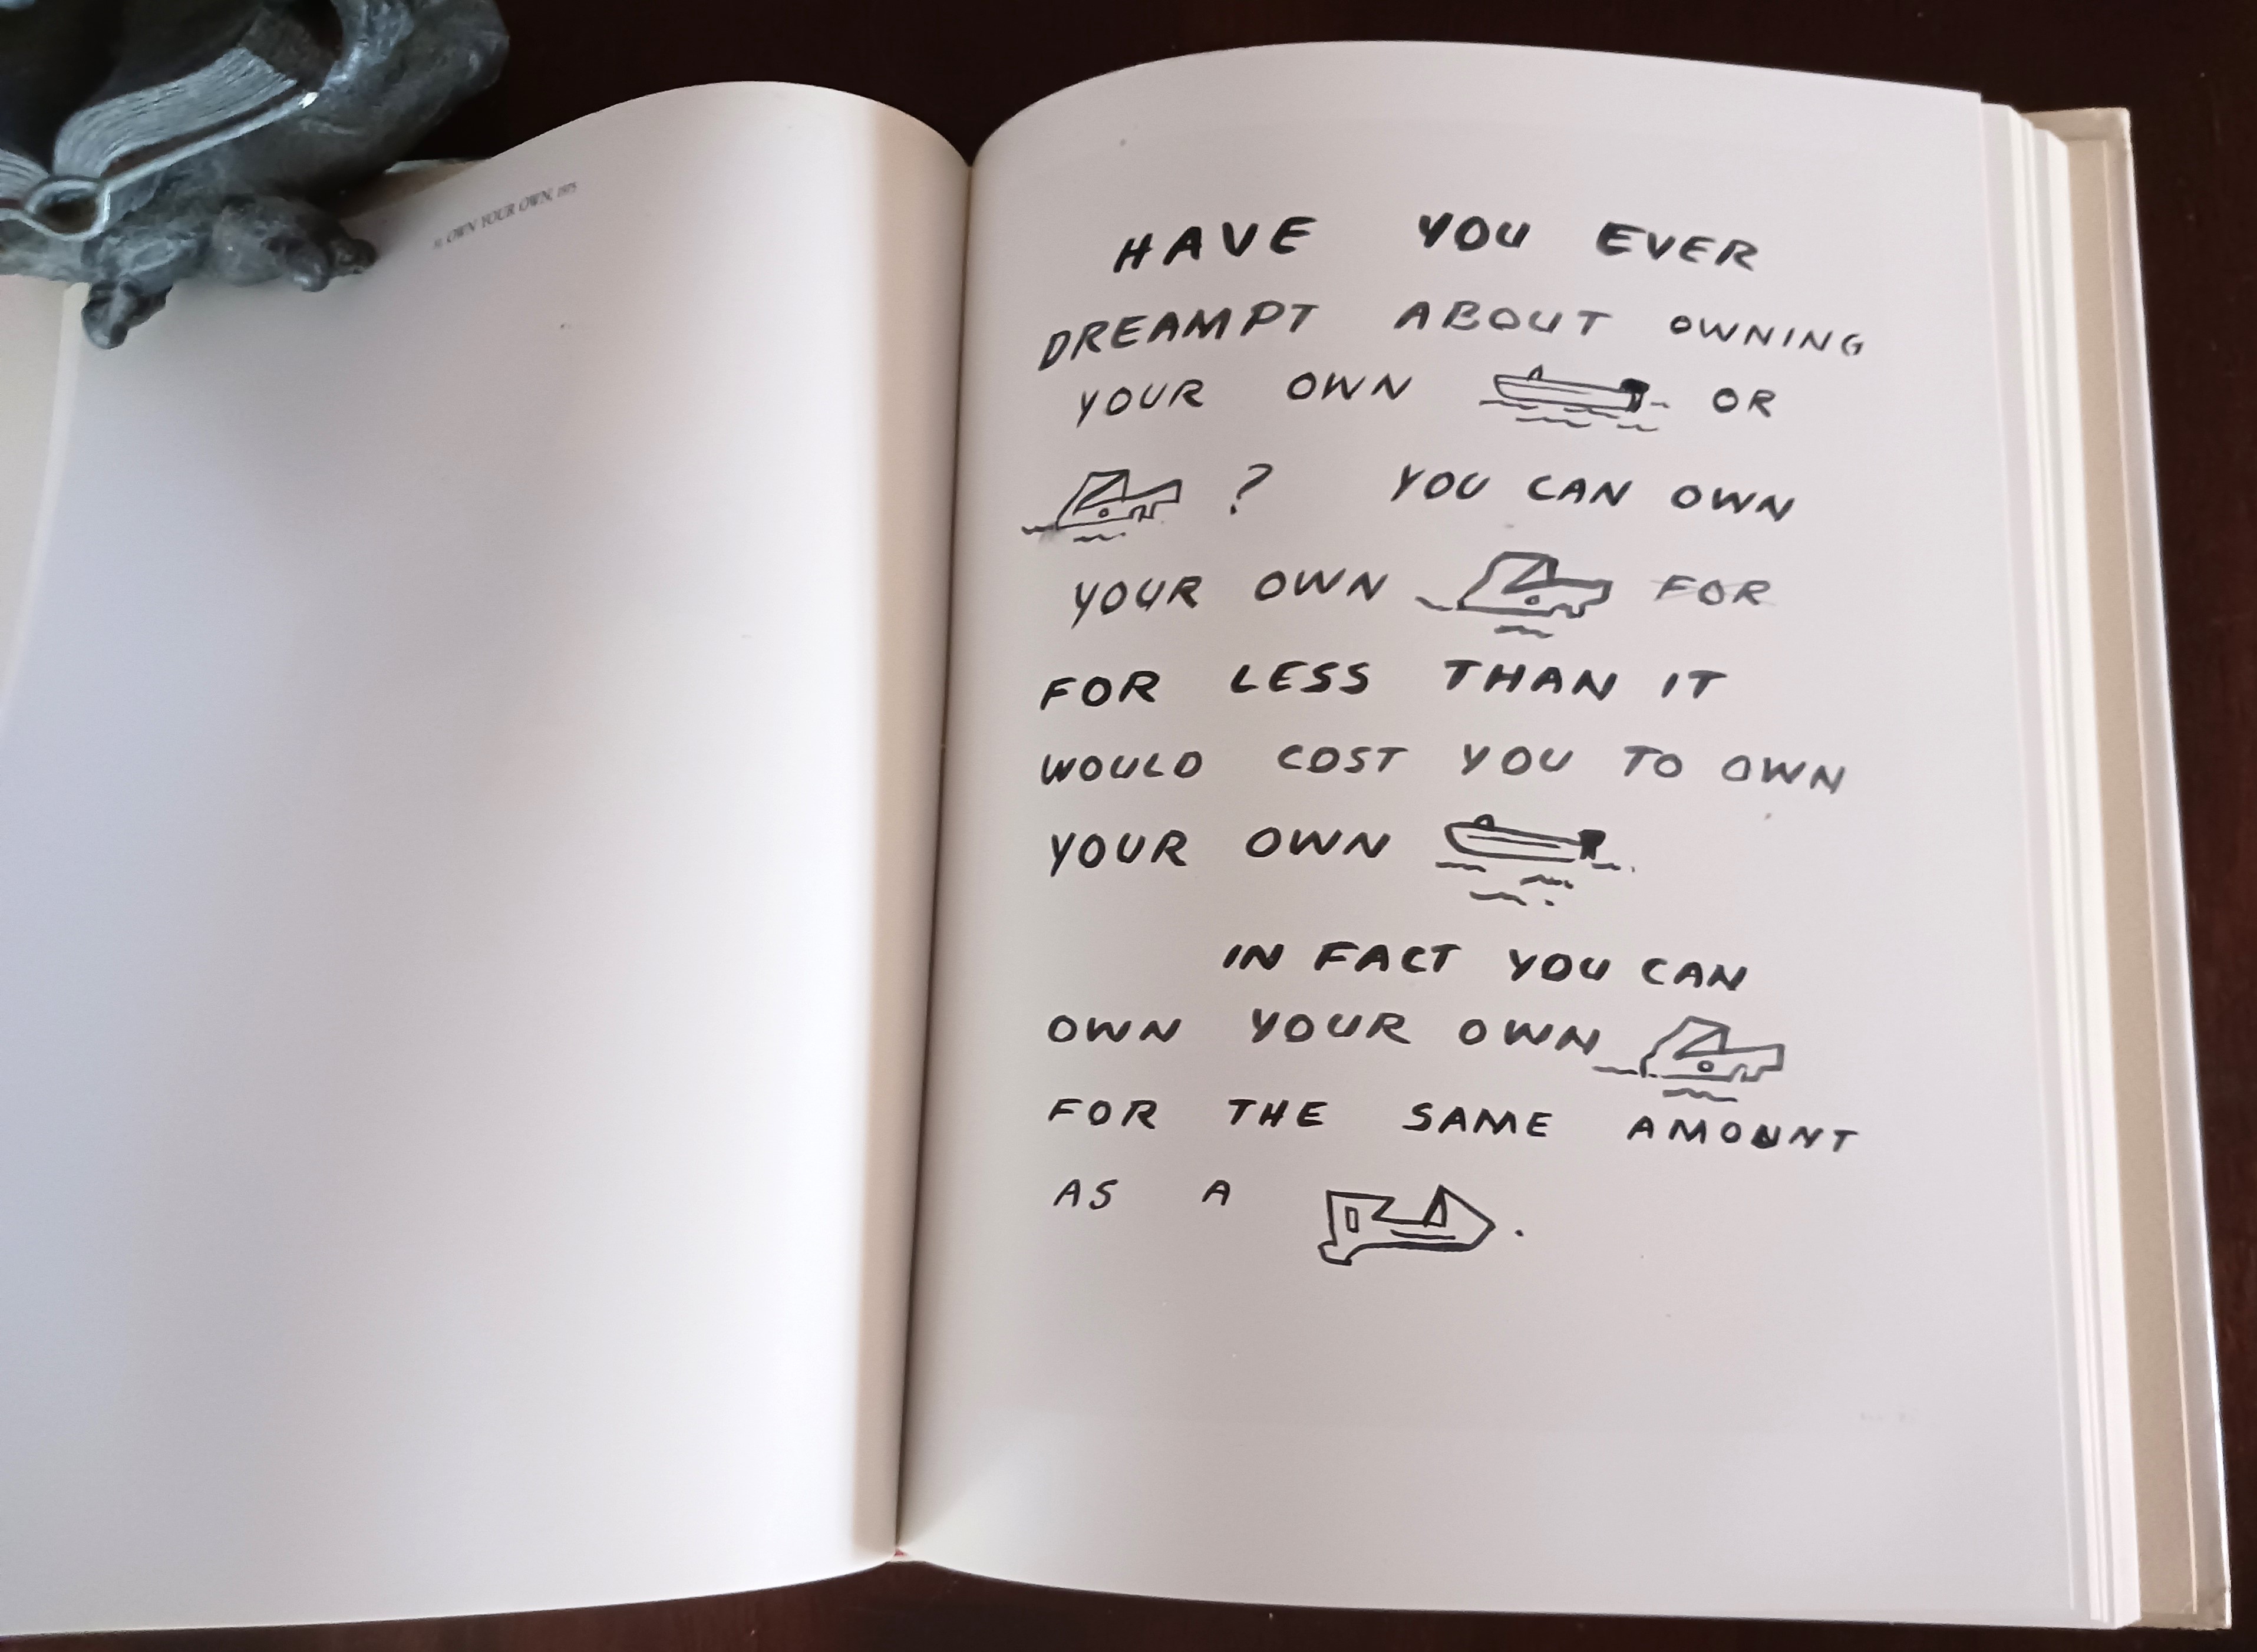 OWN YOUR OWN, 1975
HAVE YOU EVER
DREAMPT ABOUT OWNING
YOUR OWN OR
? YOU CAN OWN
YOUR OWN FOR
FOR LESS THAN IT
WOULD COST YOU TO OWN
YOUR OWN
IN FACT YOU CAN
OWN YOUR OWN
FOR THE SAME AMOUNT
AS A .